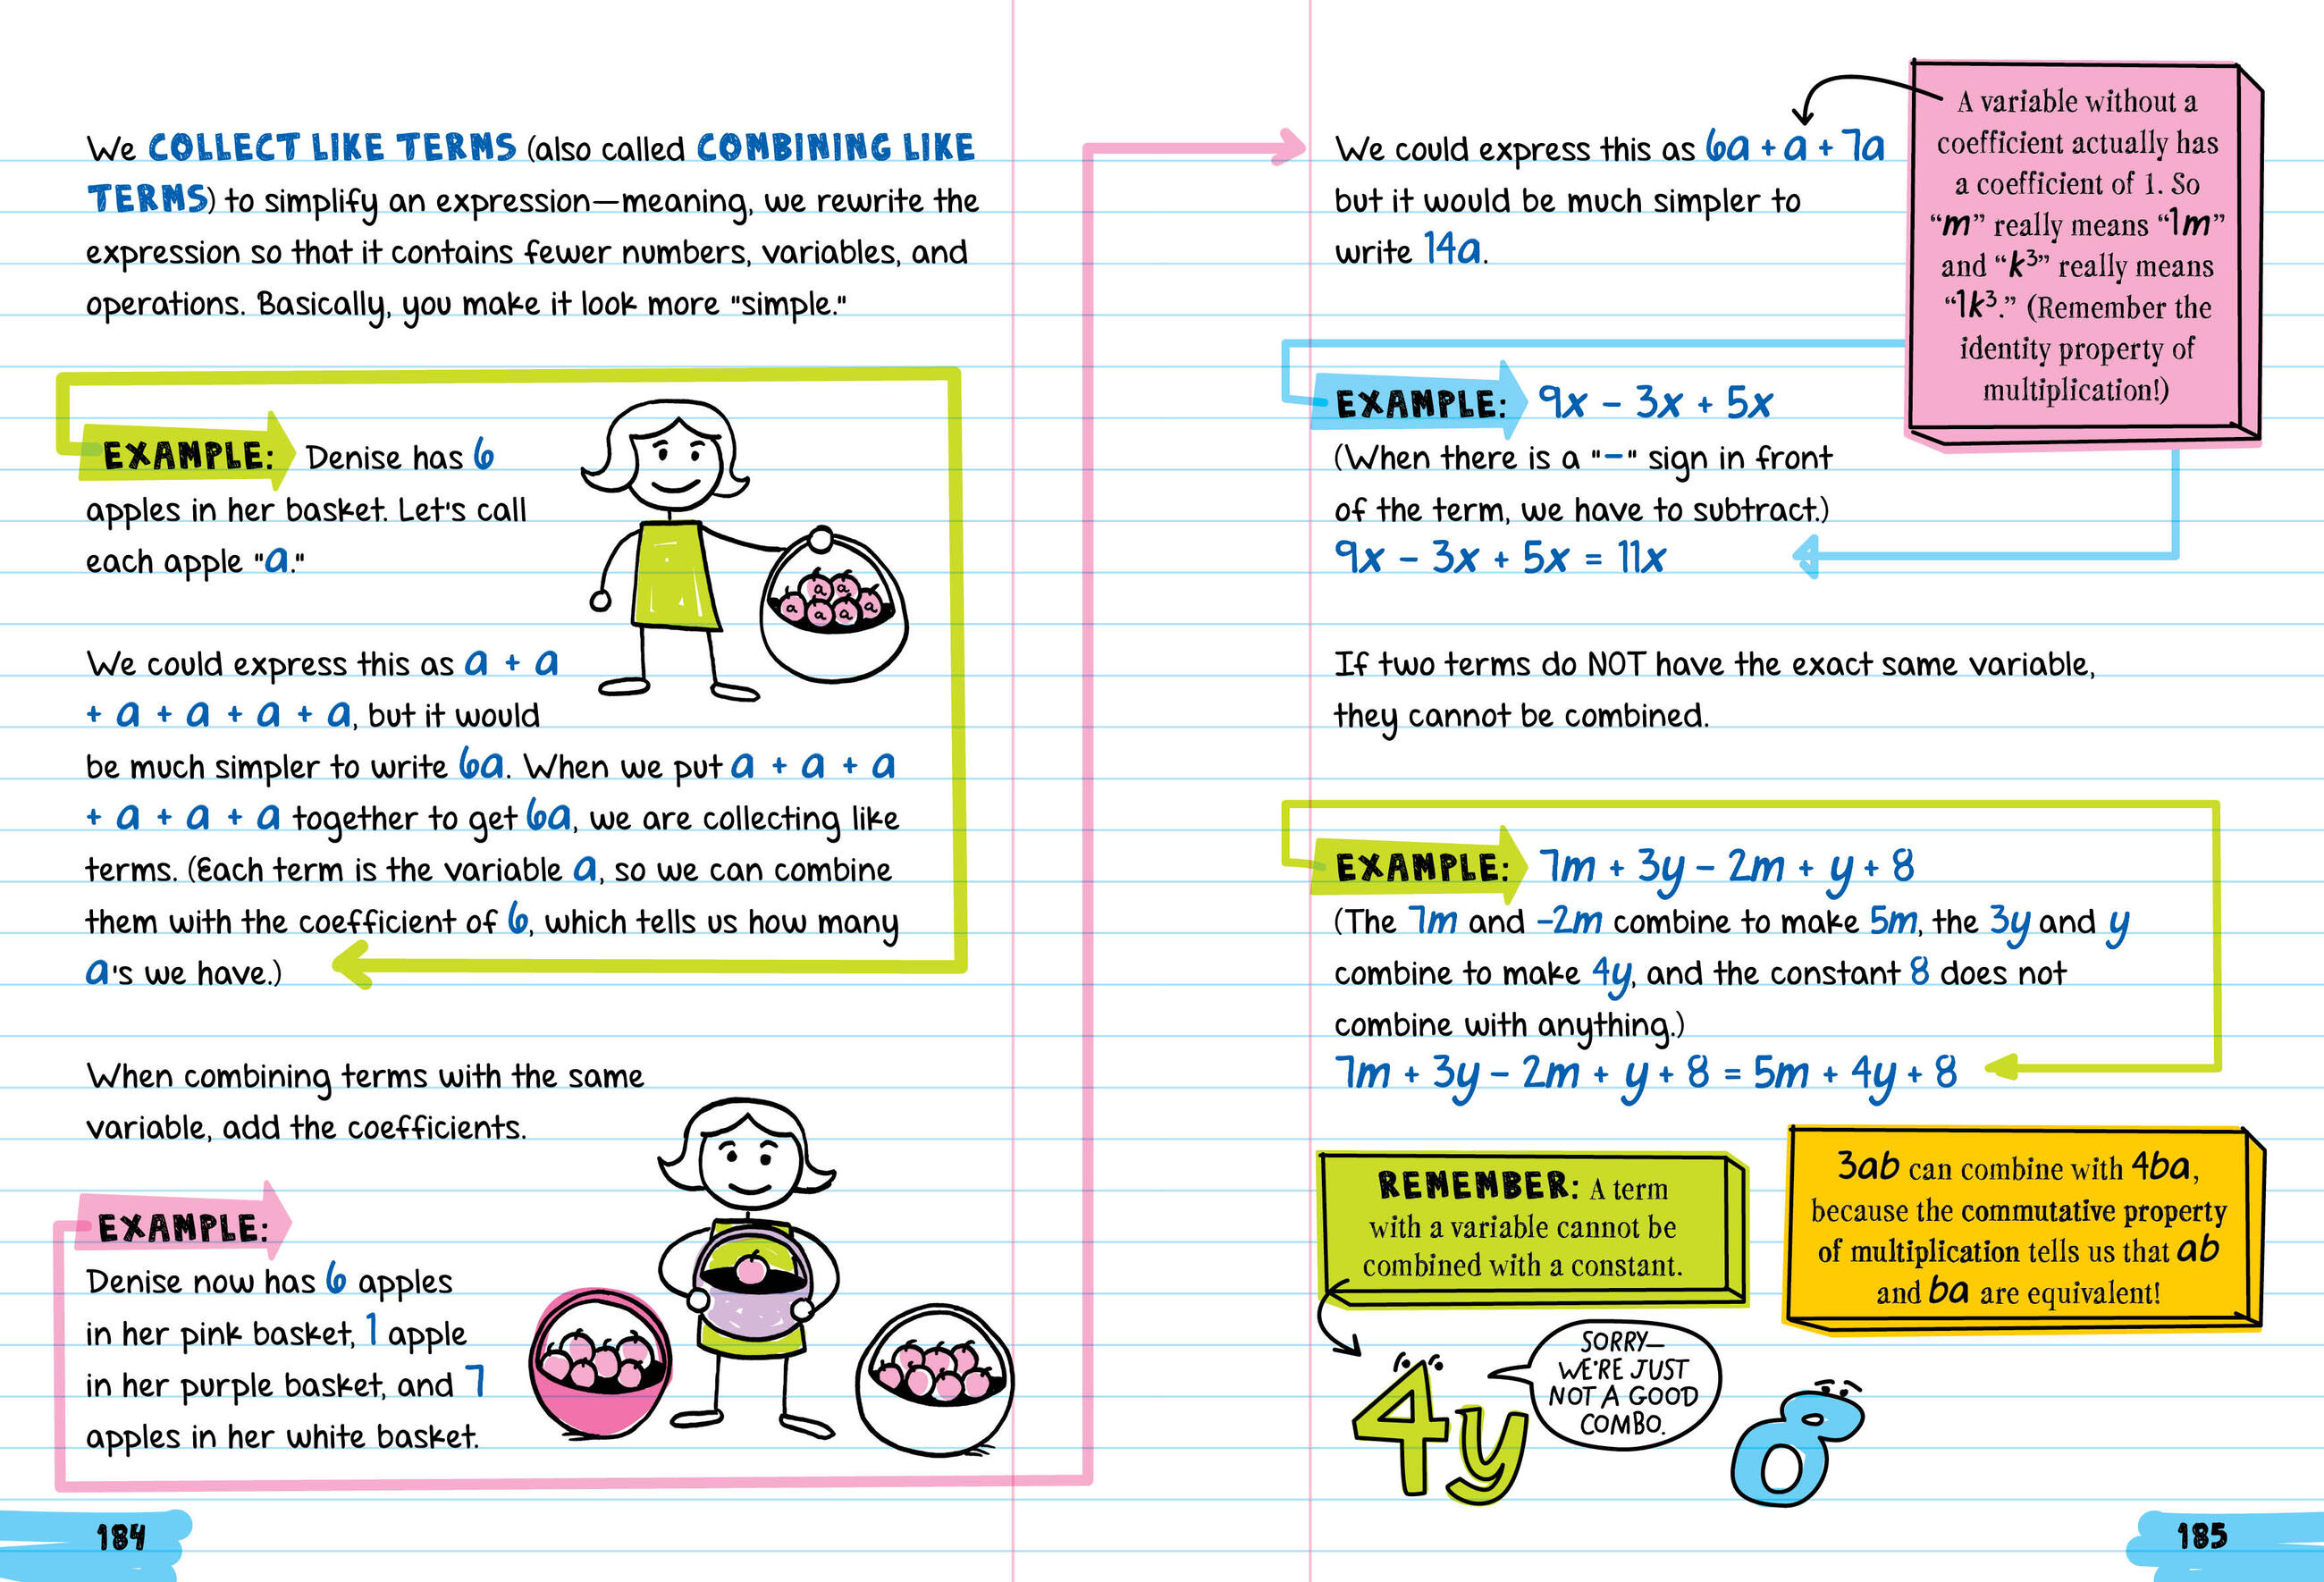 We COLLECT LIKE TERMS (also called COMBINING LIKE
TERMS) to simplify an expression—meaning, we rewrite the
expression so that it contains fewer numbers, variables, and
operations. Basically, you make it look more "simple."
EXAMPLE: Denise has 6
apples in her basket. Let's call
each apple "a."
a a
a a a a
We could express this as a + a
+ a + a + a + a, but it would
be much simpler to write 6a. When we put a + a + a
+ a + a + a together to get 6a, we are collecting like
terms. (Each term is the variable a, so we can combine
them with the coefficient of 6, which tells us how many
a's we have.)
When combining terms with the same
variable, add the coefficients.
EXAMPLE:
Denise now has 6 apples
in her pink basket, 1 apple
in her purple basket, and 7
apples in her white basket.
184
We could express this as 6a + a + 7a
but it would be much simpler to
write 14a.
A variable without a
coefficient actually has
a coefficient of 1. So
“m” really means “1m”
and “k³” really means
“1k³.” (Remember the
identity property of
multiplication!)
EXAMPLE: 9x – 3x + 5x
(When there is a "–" sign in front
of the term, we have to subtract.)
9x – 3x + 5x = 11x
If two terms do NOT have the exact same variable,
they cannot be combined.
EXAMPLE: 7m + 3y – 2m + y + 8
(The 7m and -2m combine to make 5m, the 3y and y
combine to make 4y, and the constant 8 does not
combine with anything.)
7m + 3y – 2m + y + 8 = 5m + 4y + 8
REMEMBER: A term
with a variable cannot be
combined with a constant.
3ab can combine with 4ba,
because the commutative property
of multiplication tells us that ab
and ba are equivalent!
SORRY—
WE'RE JUST
NOT A GOOD
COMBO.
4y 8
185